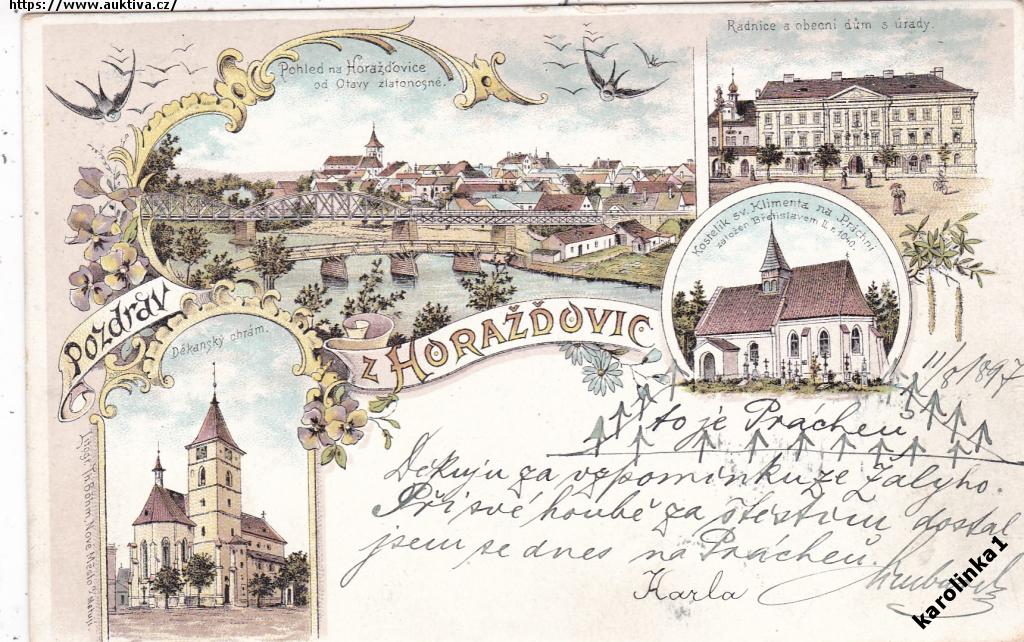 https://www.auktiva.cz/
Pohled na Horažďovice
od Otavy zlatonosné.
Radnice a obecní dům s úřady.
Kostelík sv. Klimenta na Práchni
založen Břetislavem II. r. 1040.
Pozdrav
z HORAŽĎOVIC
Děkanský chrám.
11/8 1897
to je Prácheň
Děkuju za vzpomínku ze Zalyho.
Při své houbě za štěstím dostal
jsem se dnes na Prácheň.
Karla
karolinka1